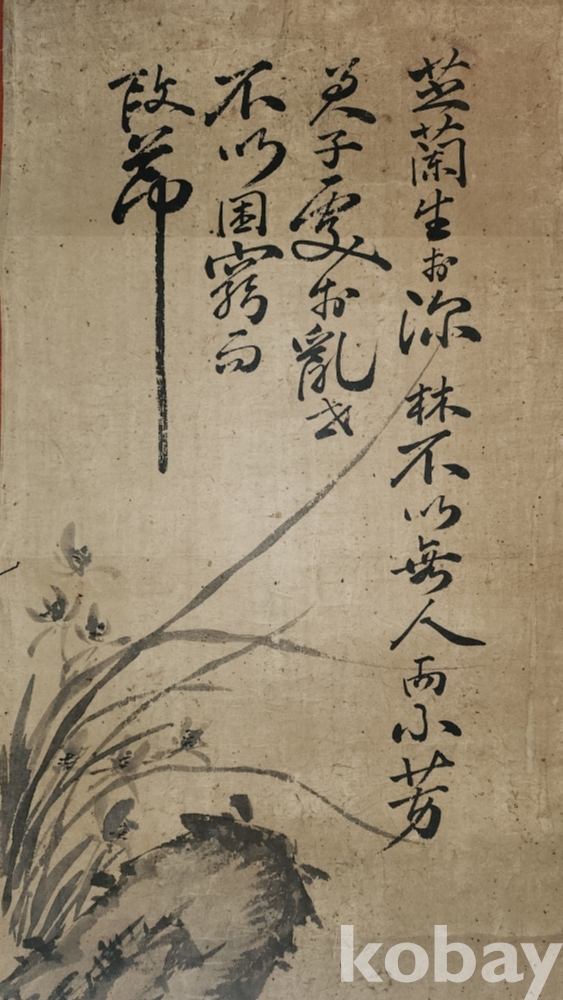 芝蘭生扵深林不以無人而不芳
君子處扵亂世
不以困窮而
改節
kobay